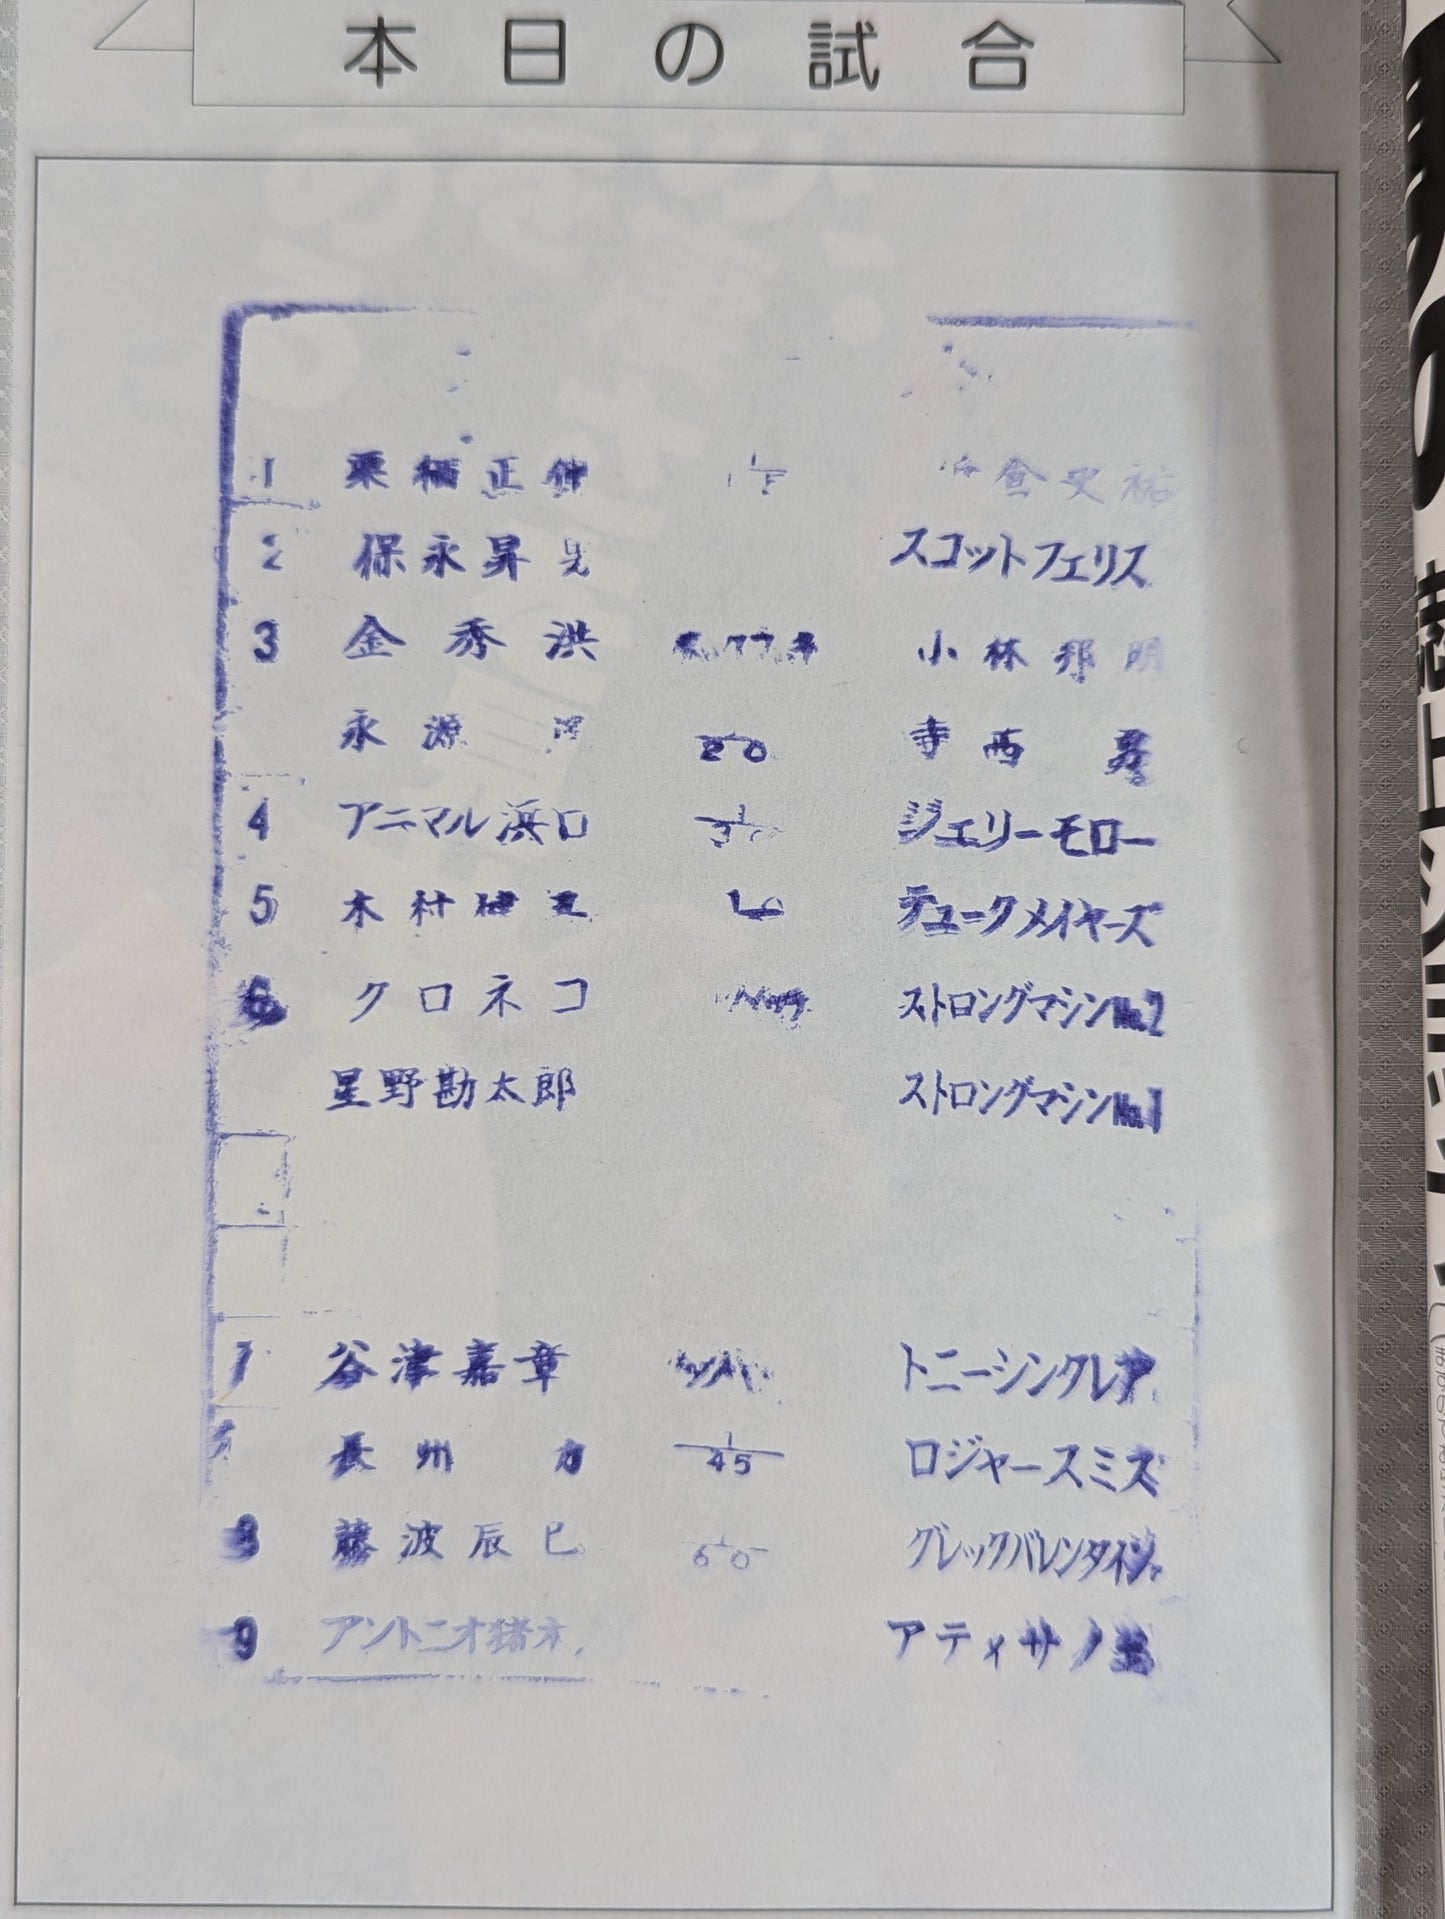 本日の試合
1 栗栖正伸 1/15 倉史祐
2 保永昇 スコットフェリス
3 金秀洪 小林邦明
永源 1/20 寺西勇
4 アニマル浜口 1/30 ジェリーモロー
5 木村健 デュークメイヤーズ
6 クロネコ ストロングマシンNo.2
星野勘太郎 ストロングマシンNo.1
7 谷津嘉章 トニーシンクレア
長州力 1/45 ロジャースミズ
8 藤波辰巳 1/60 グレックバレンタイン
9 アントニオ猪木 アティサノエ